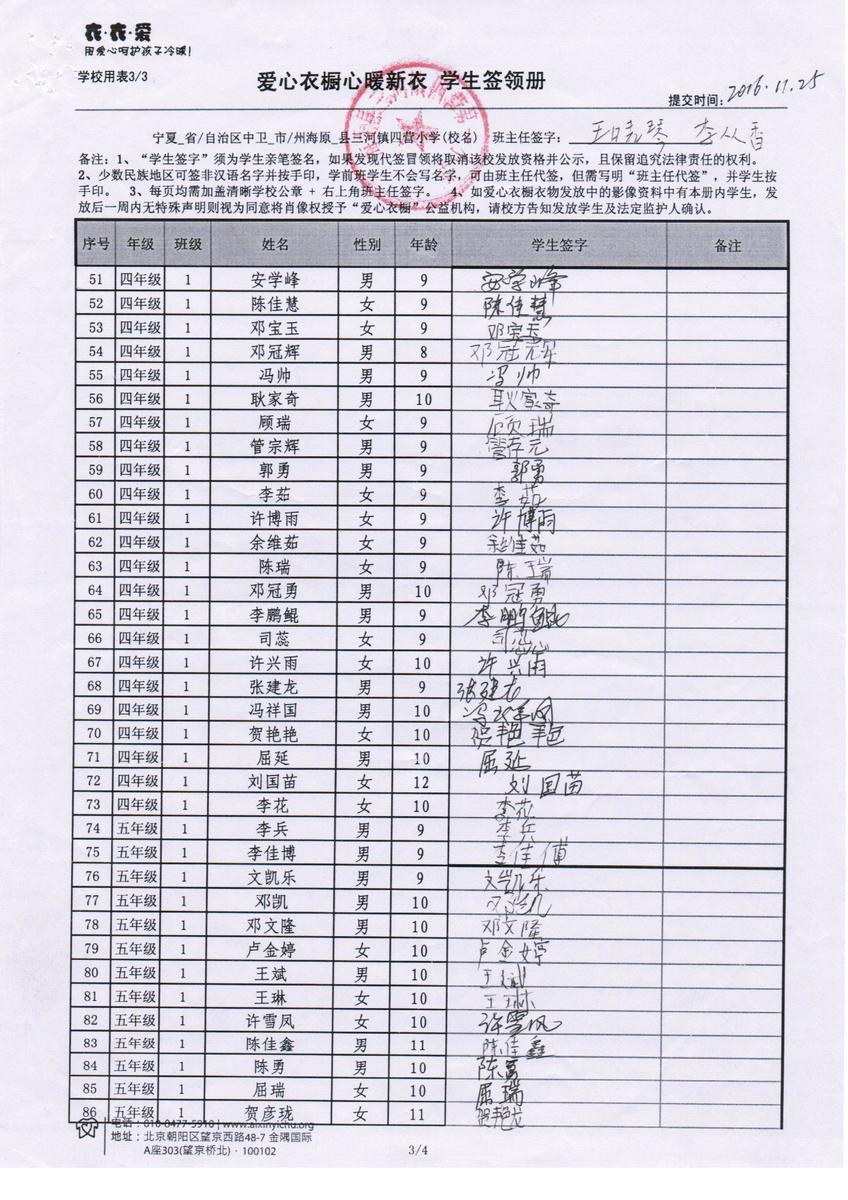 衣·衣·爱
用爱心呵护孩子冷暖!
学校用表3/3
爱心衣橱心暖新衣 学生签领册
提交时间: 2016.11.25
宁夏_省/自治区中卫_市/州海原_县三河镇四营小学(校名) 班主任签字: 李从香
备注:1、“学生签字”须为学生亲笔签名,如果发现代签冒领将取消该校发放资格并公示,且保留追究法律责任的权利。
2、少数民族地区可签非汉语名字并按手印,学前班学生不会写名字,可由班主任代签,但需写明“班主任代签”,并学生按
手印。 3、每页均需加盖清晰学校公章 + 右上角班主任签字。 4、如爱心衣橱衣物发放中的影像资料中有本册内学生,发
放后一周内无特殊声明则视为同意将肖像权授予“爱心衣橱”公益机构,请校方告知发放学生及法定监护人确认。
序号 年级 班级 姓名 性别 年龄 学生签字 备注
51 四年级 1 安学峰 男 9 安学峰
52 四年级 1 陈佳慧 女 9 陈佳慧
53 四年级 1 邓宝玉 女 9 邓宝玉
54 四年级 1 邓冠辉 男 8 邓冠辉
55 四年级 1 冯帅 男 9 冯帅
56 四年级 1 耿家奇 男 10 耿家奇
57 四年级 1 顾瑞 女 9 顾瑞
58 四年级 1 管宗辉 男 9
59 四年级 1 郭勇 男 9 郭勇
60 四年级 1 李茹 女 9 李茹
61 四年级 1 许博雨 女 9 许博雨
62 四年级 1 余维茹 女 9 余维茹
63 四年级 1 陈瑞 女 9 陈瑞
64 四年级 1 邓冠勇 男 10 邓冠勇
65 四年级 1 李鹏鲲 男 9 李鹏鲲
66 四年级 1 司蕊 女 9 司蕊
67 四年级 1 许兴雨 女 10 许兴雨
68 四年级 1 张建龙 男 9 张建龙
69 四年级 1 冯祥国 男 10 冯祥国
70 四年级 1 贺艳艳 女 10 贺艳艳
71 四年级 1 屈延 男 10 屈延
72 四年级 1 刘国苗 女 12 刘国苗
73 四年级 1 李花 女 10 李花
74 五年级 1 李兵 男 9 李兵
75 五年级 1 李佳博 男 9 李佳博
76 五年级 1 文凯乐 男 9 文凯乐
77 五年级 1 邓凯 男 10 邓凯
78 五年级 1 邓文隆 男 10 邓文隆
79 五年级 1 卢金婷 女 10 卢金婷
80 五年级 1 王斌 男 10 王斌
81 五年级 1 王琳 女 10 王琳
82 五年级 1 许雪凤 女 10 许雪凤
83 五年级 1 陈佳鑫 男 11 陈佳鑫
84 五年级 1 陈勇 男 10 陈勇
85 五年级 1 屈瑞 女 10 屈瑞
86 五年级 1 贺彦珑 女 11
电话:010-8477-5910 | www.aixinyichu.org
地址:北京朝阳区望京西路48-7 金隅国际
A座303(望京桥北)·100102
3/4